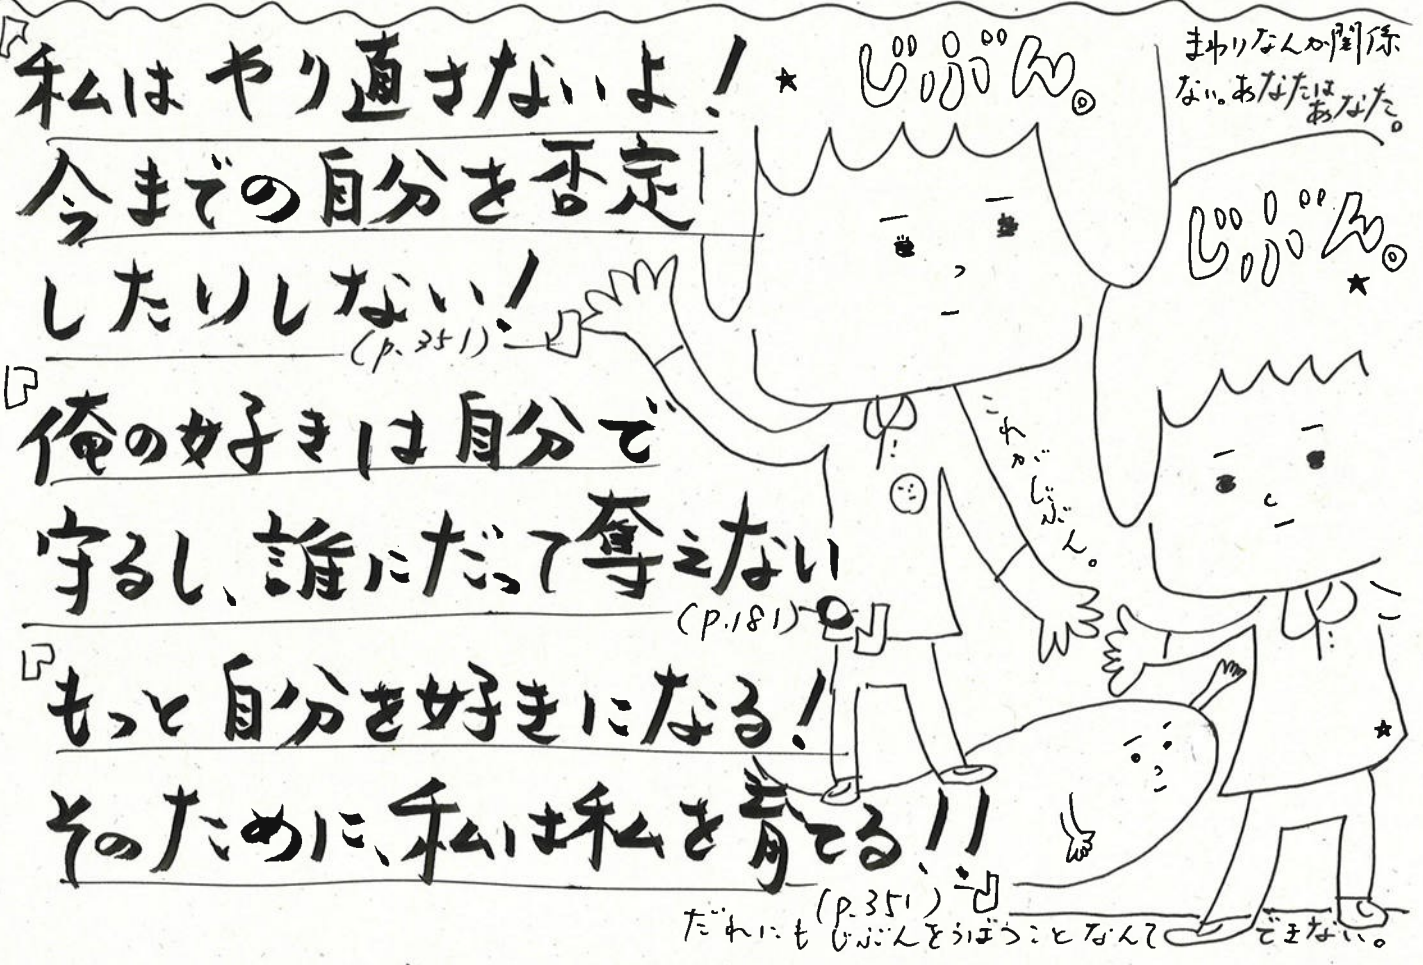 『私はやり直さないよ！
今までの自分を否定
したりしない！
(p.351)』
『俺の好きは自分で
守るし、誰にだって奪えない
(p.181)。』
『もっと自分を好きになる！
そのために、私は私を育てる!!
(p.351)』
★じぶん。
まわりなんか関係
ない。あなたは
あなた。
じぶん。
★
これがじぶん。
★
だれにもじぶんをうばうことなんて できない。